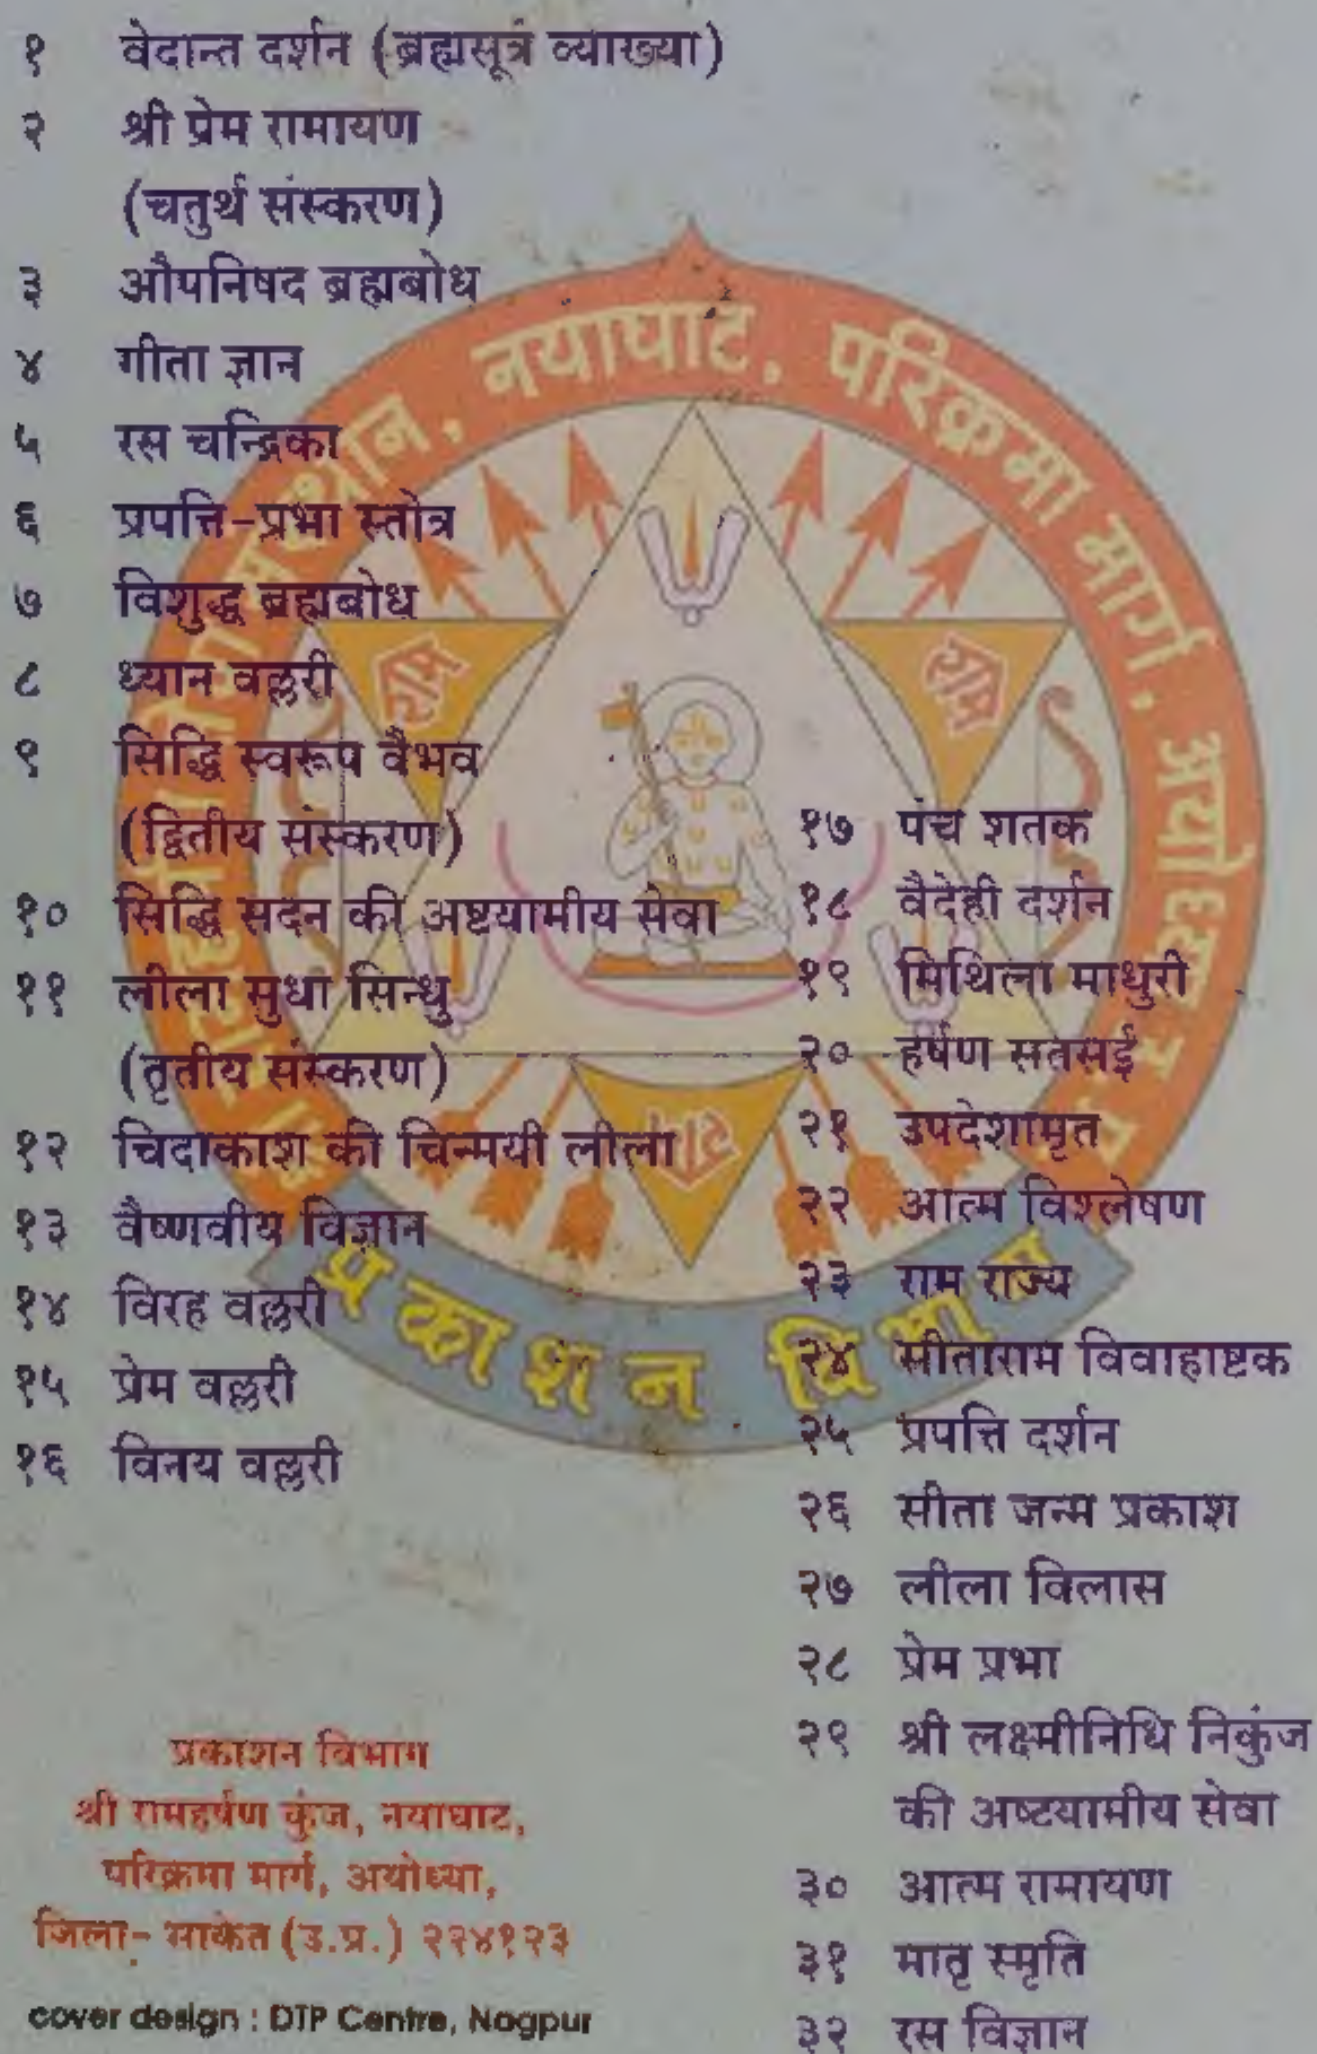 १ वेदान्त दर्शन (ब्रह्मसूत्र व्याख्या)
२ श्री प्रेम रामायण
(चतुर्थ संस्करण)
३ औपनिषद ब्रह्मबोध
४ गीता ज्ञान
५ रस चन्द्रिका
६ प्रपत्ति-प्रभा स्तोत्र
७ विशुद्ध ब्रह्मबोध
८ ध्यान वल्लरी
९ सिद्धि स्वरूप वैभव
(द्वितीय संस्करण)
१० सिद्धि सदन की अष्टयामीय सेवा
११ लीला सुधा सिन्धु
(तृतीय संस्करण)
१२ चिदाकाश की चिन्मयी लीला
१३ वैष्णवीय विज्ञान
१४ विरह वल्लरी
१५ प्रेम वल्लरी
१६ विनय वल्लरी
१७ पंच शतक
१८ वैदेही दर्शन
१९ मिथिला माधुरी
२० हर्षण सतसई
२१ उपदेशामृत
२२ आत्म विश्लेषण
२३ राम राज्य
२४ सीताराम विवाहाष्टक
२५ प्रपत्ति दर्शन
२६ सीता जन्म प्रकाश
२७ लीला विलास
२८ प्रेम प्रभा
२९ श्री लक्ष्मीनिधि निकुंज
की अष्टयामीय सेवा
३० आत्म रामायण
३१ मातृ स्मृति
३२ रस विज्ञान
नयाघाट, परिक्रमा मार्ग, अयोध्या उ.प्र.
राम
राम
राम
प्रकाशन विभाग
प्रकाशन विभाग
श्री रामहर्षण कुंज, नयाघाट,
परिक्रमा मार्ग, अयोध्या,
जिला- साकेत (उ.प्र.) २२४१२३
cover design : DTP Centre, Nagpur